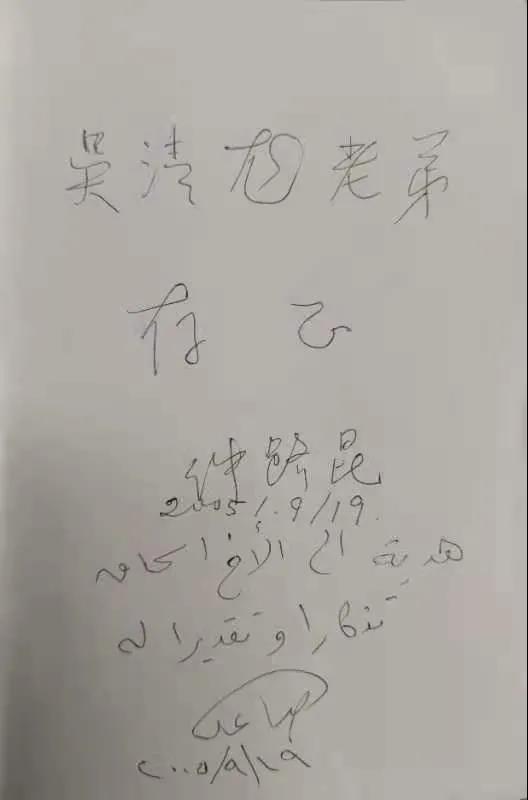 吴清 老弟
存正
仲跻昆
2005/.9/19.
هدية الى الأخ
تذكارا وتقديرا له
صاعد
٢٠٠٥/٩/١٩